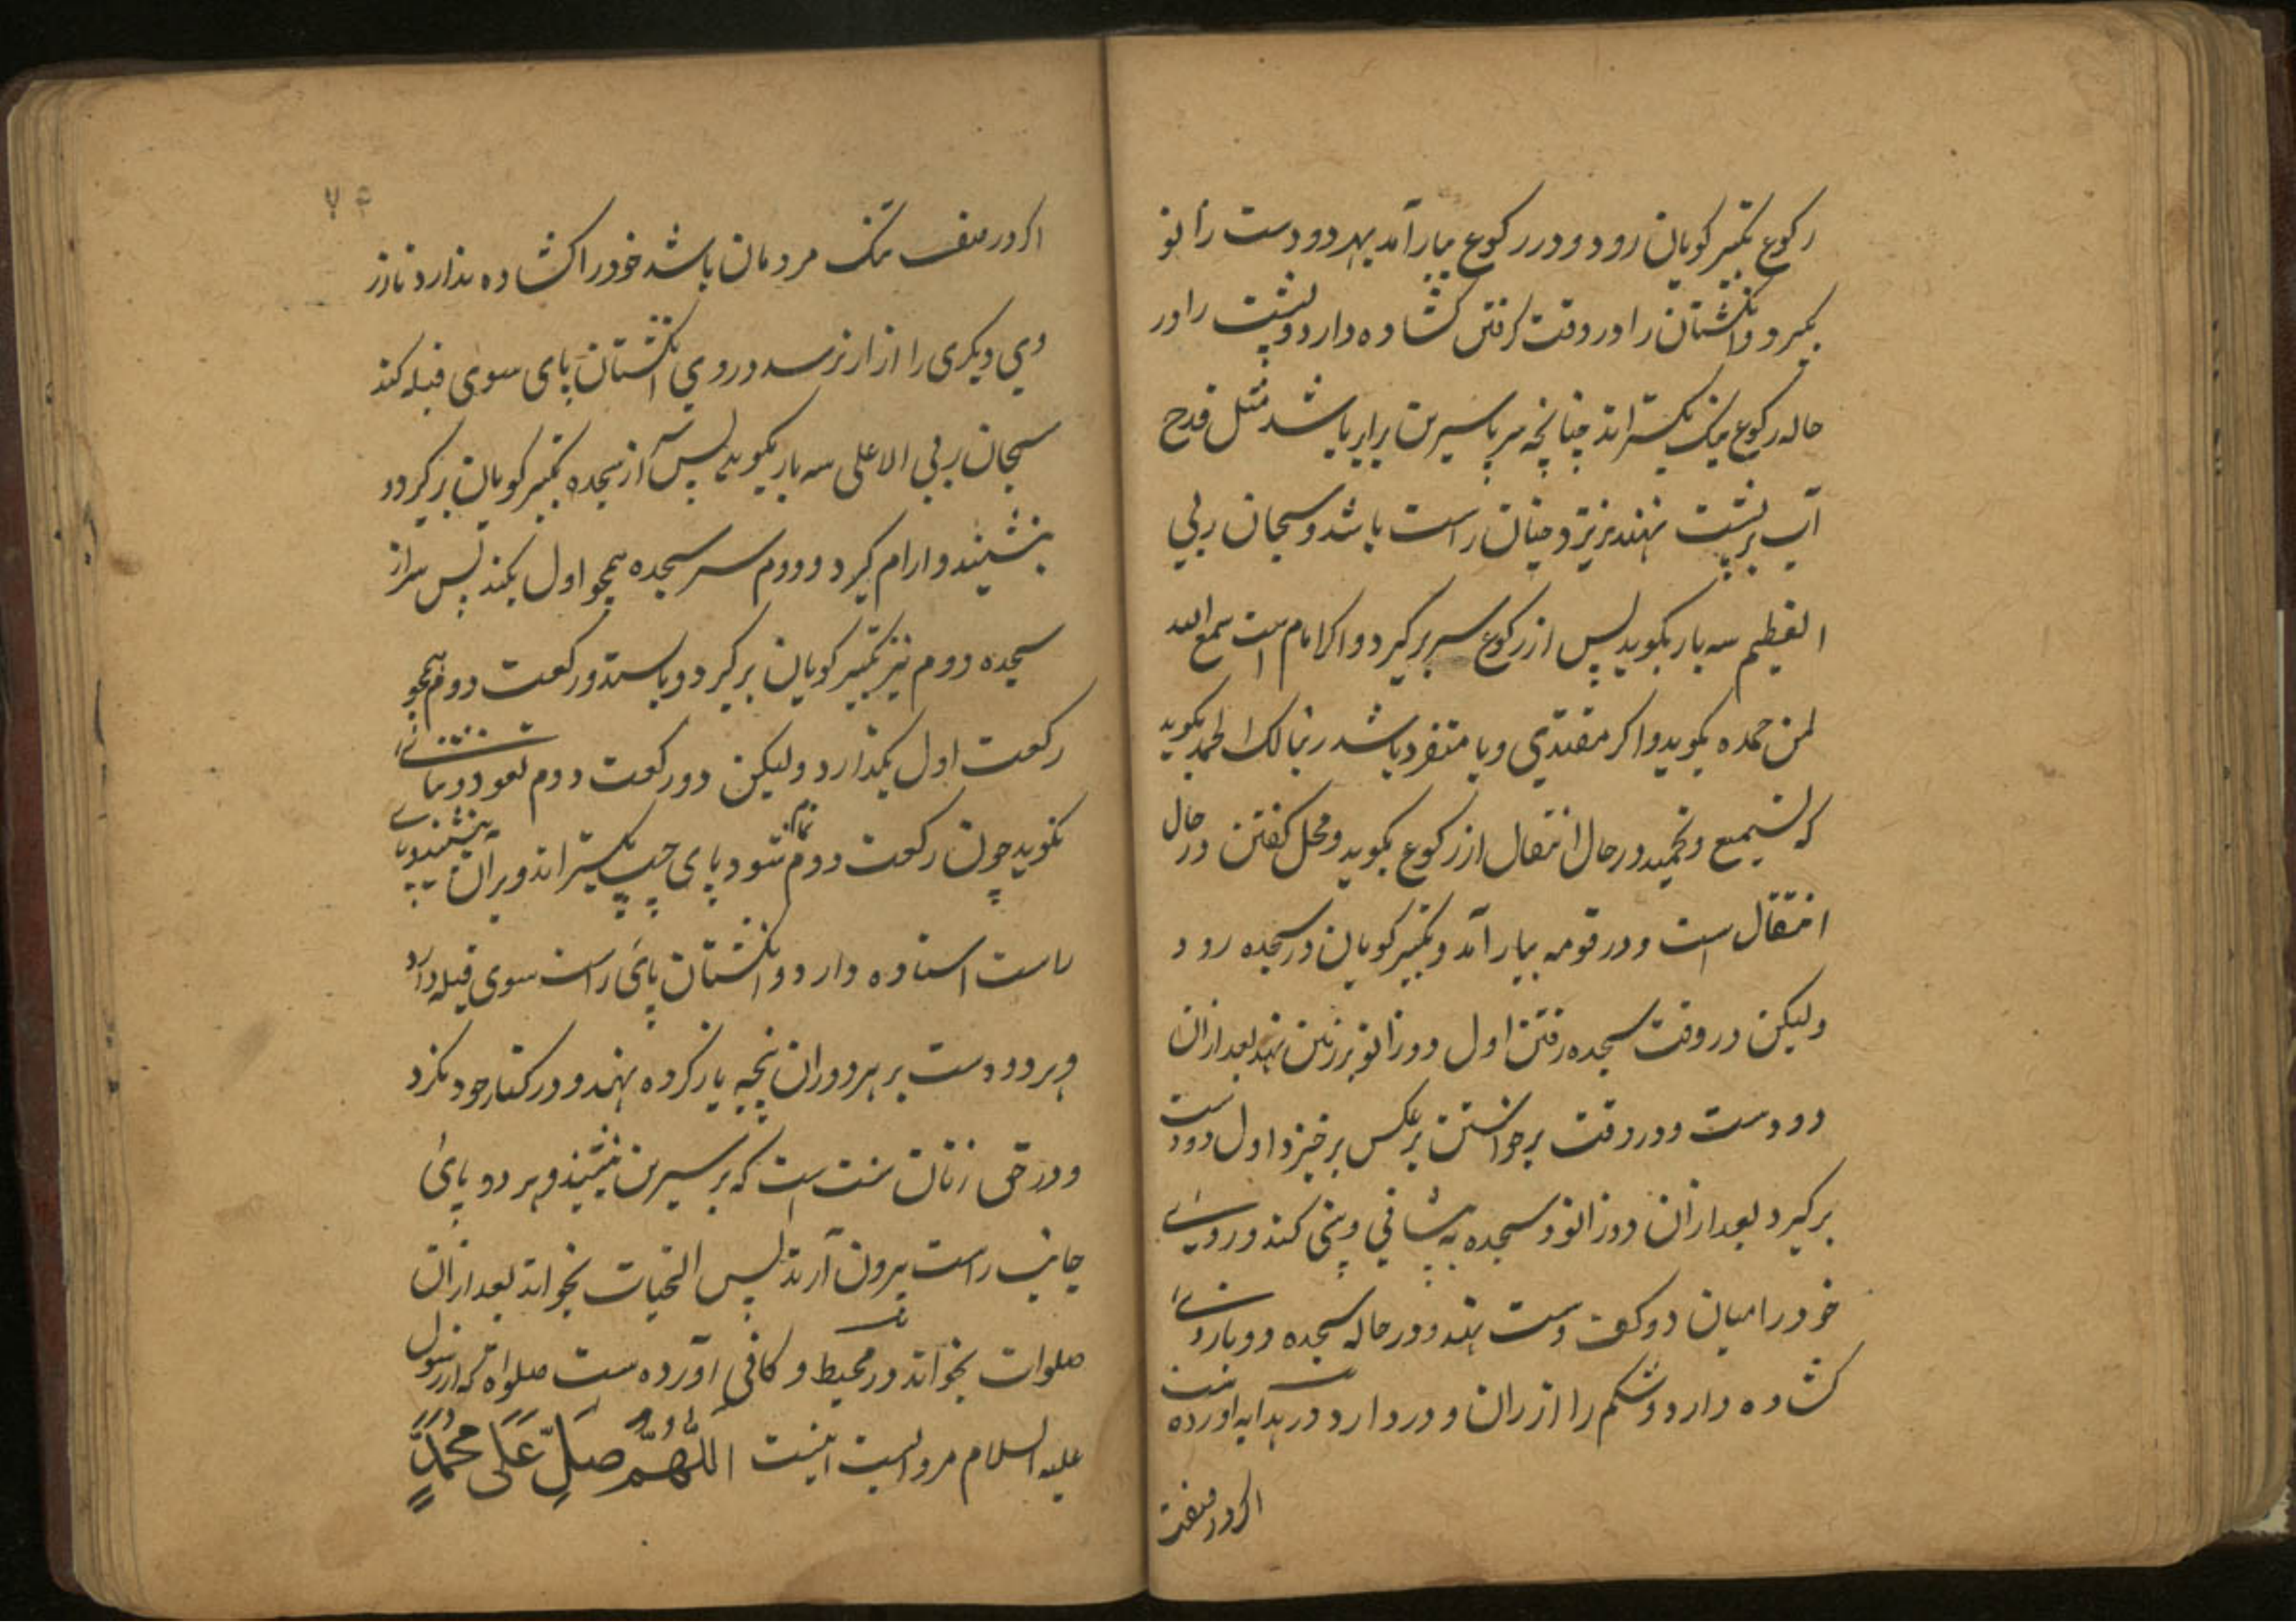 رکوع تکبیر کویان رود و در رکوع بیارآمد بهر دو دست زانو
بکیرد و انکشتان را در وقت کرفتن کشاده دارد و پشت را در
حاله رکوع بکستراند چنانچه سر با سیرین برابر باشد مثل قدح
آب بر پشت نهند نریزد چنان راست باشد و سبحان ربی
العظیم سه بار بکوید پس از رکوع سر برکیرد و اکر امام است سمع الله
لمن حمده بکوید و اکر مقتدی و یا منفرد باشد ربنا لک الحمد بکوید
که تسمیع و تحمید در حال انتقال از رکوع بکوید و محل کفتن در حال
انتقال است و در قومه بیارآمد و تکبیر کویان در سجده رود
ولیکن در وقت سجده رفتن اول دو زانو بر زمین نهد بعد ازان
دو دست و در وقت برخواستن برعکس برخیزد اول دو دست
برکیرد بعد ازان دو زانو و سجده به پیشانی و بینی کند و روی
خود را میان دو کف دست نهد و در حاله سجده دو بازوی
کشاده دارد و شکم را از ران دور دارد در هدایه اورده است
اکر در صف
۷۴
اکر در صف تنک مردمان باشد خود را کشاده ندارد تا از
وی دیکری را ازار نرسد و روی انکشتان پای سوی قبله کند
سبحان ربی الاعلی سه بار بکوید پس سر از سجده تکبیر کویان برکیرد و
بنشیند و ارام کیرد و دوم سجده همچو اول بکند پس سر از
سجده دوم نیز تکبیر کویان برکیرد و باستد و رکعت دوم همچو
رکعت اول بکذارد ولیکن در رکعت دوم تعوذ و ثنا
نکوید چون رکعت دوم تمام شود پای چپ بکستراند و بر آن بنشیند و پای
راست استاده دارد و انکشتان پای راست سوی قبله دارد
و هر دو دست بر هر دو ران پنجه باز کرده نهد و در کنار خود نکرد
و در حق زنان سنت است که بر سیرین بنشیند و هر دو پای
جانب راست بیرون آرند پس التحیات بخواند بعد ازان
صلوات بخواند در محیط و کافی آورده ست صلواة که از رسول
علیه السلام مرویست اینست اللَّهُمَّ صَلِّ عَلَى مُحَمَّدٍ